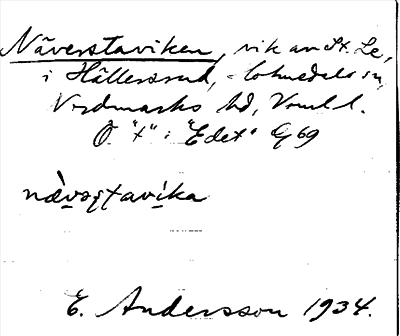 Näverstaviken, vik av St. Le,
i Hällersrud, Blomskogs sn,
Nordmarks hd, Vrml l.
Ö "t" i "Edet" G 69
nævəʂtavika
E. Andersson 1934.